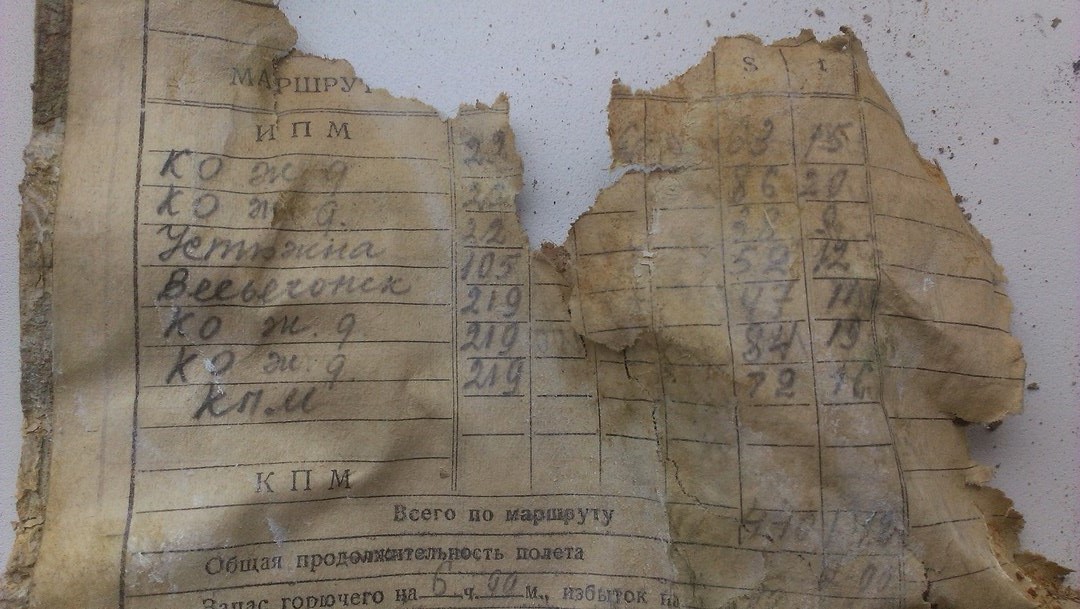 МАРШРУТ S t
ИПМ 22 63 15
КО ж д 22 86 20
КО ж д. 22 9
Устюжна 105 52 12
Весьегонск 219 47 11
КО ж. д. 219 84 19
КО ж. д. 219 72 16
КПМ
КПМ
Всего по маршруту
Общая продолжительность полета
Запас горючего на 6 ч. 00 м., избыток на